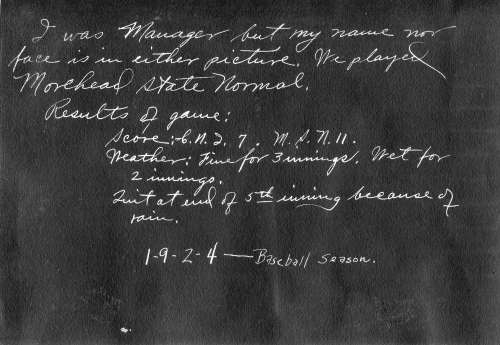 I was Manager but my name nor
face is in either picture. We played
Morehead State Normal.
Results of game:
Score:- C.N.2. 7. M.S.N. 11.
Weather: Fine for 3 innings. Wet for
2 innings.
Quit at end of 5th inning because of
rain.
1-9-2-4 — Baseball Season.